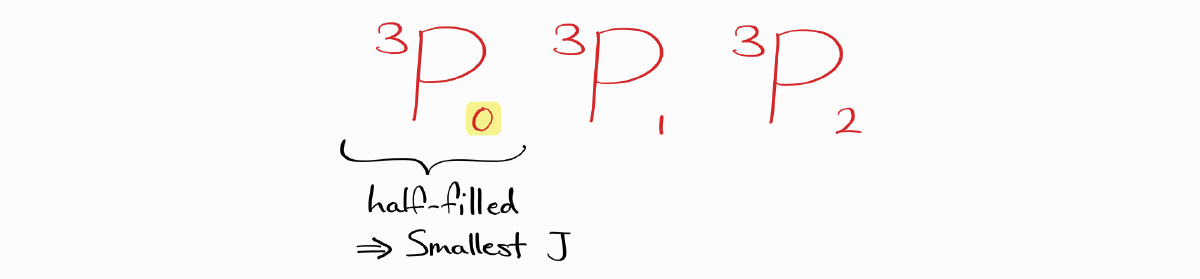 ³P₀ ³P₁ ³P₂
half-filled
⇒ Smallest J